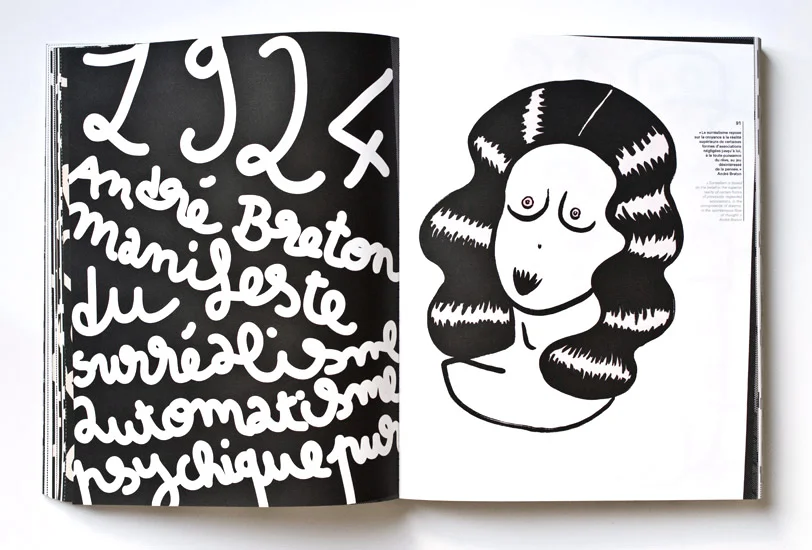 1924
André Breton
manifeste
du
surréalisme
automatisme
psychique pur
«Le surréalisme repose
sur la croyance à la réalité
supérieure de certaines
formes d'associations
négligées jusqu'à lui,
à la toute-puissance
du rêve, au jeu
désintéressé
de la pensée.»
André Breton